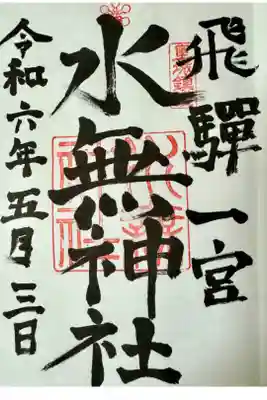 飛驒一宮
水無神社
令和六年五月三日